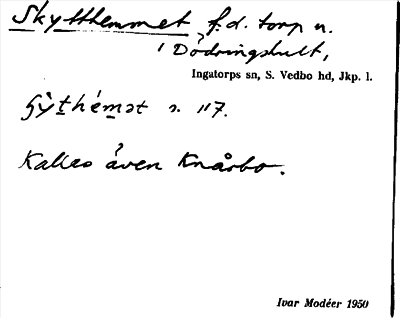 Skytthemmet, f.d. torp u.
Dödringshult,
Ingatorps sn, S. Vedbo hd, Jkp. l.
n. 117.
Kallas även Knårbo.
Ivar Modéer 1950